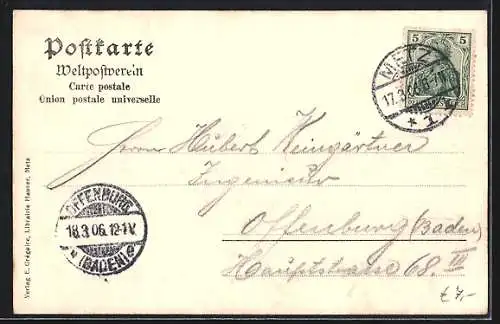 Postkarte
Weltpostverein
Carte postale
Union postale universelle
5 5
METZ
17.3.06. 6-7N
* 1 *
Herrn Hubert Weingärtner
Ingenieur
Offenburg (Baden)
Hauptstrasse 68. III
OFFENBURG
18.3.06. 12-1V.
* (BADEN) *
Verlag E. Grégoire, Librairie Hanner, Metz
£ 7,-